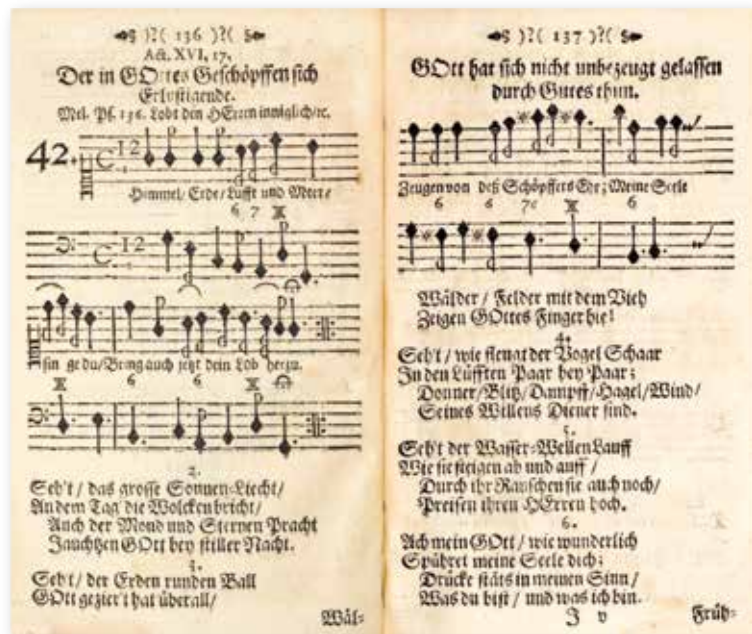 136
Act. XVI, 17.
Der in GOttes Geschöpffen sich
Erlustigende.
Mel. Ps. 136. Lobt den HErren inniglich/ꝛc.
42.
C 12
Himmel/Erde/Lufft und Meer/
6 7
C 12
singe du/Bring auch jetzt dein Lob herzu.
6 6
2.
Seh't / das grosse Sonnen-Liecht/
An dem Tag die Wolcken bricht/
Auch der Mond und Sternen Pracht
Jauchtzen GOtt bey stiller Nacht.
3.
Seh't / der Erden runden Ball
GOtt gezier't hat überall/
Wäl-
137
GOtt hat sich nicht unbezeugt gelassen
durch Gutes thun.
Zeugen von deß Schöpffers Ehr; Meine Seele
6 6 6
Wälder / Felder mit dem Vieh
Zeigen GOttes Finger hie!
4.
Seh't / wie fleugt der Vogel Schaar
In den Lüfften Paar bey Paar;
Donner/Blitz/Dampff/Hagel/Wind/
Seines Willens Diener sind.
5.
Seh't der Wasser-Wellen Lauff
Wie sie steigen ab und auff /
Durch ihr Rauschen sie auch noch/
Preisen ihren HErren hoch.
6.
Ach mein GOtt / wie wunderlich
Spühret meine Seele dich;
Drücke stäts in meinen Sinn /
Was du bist / und was ich bin.
J v
Früh-